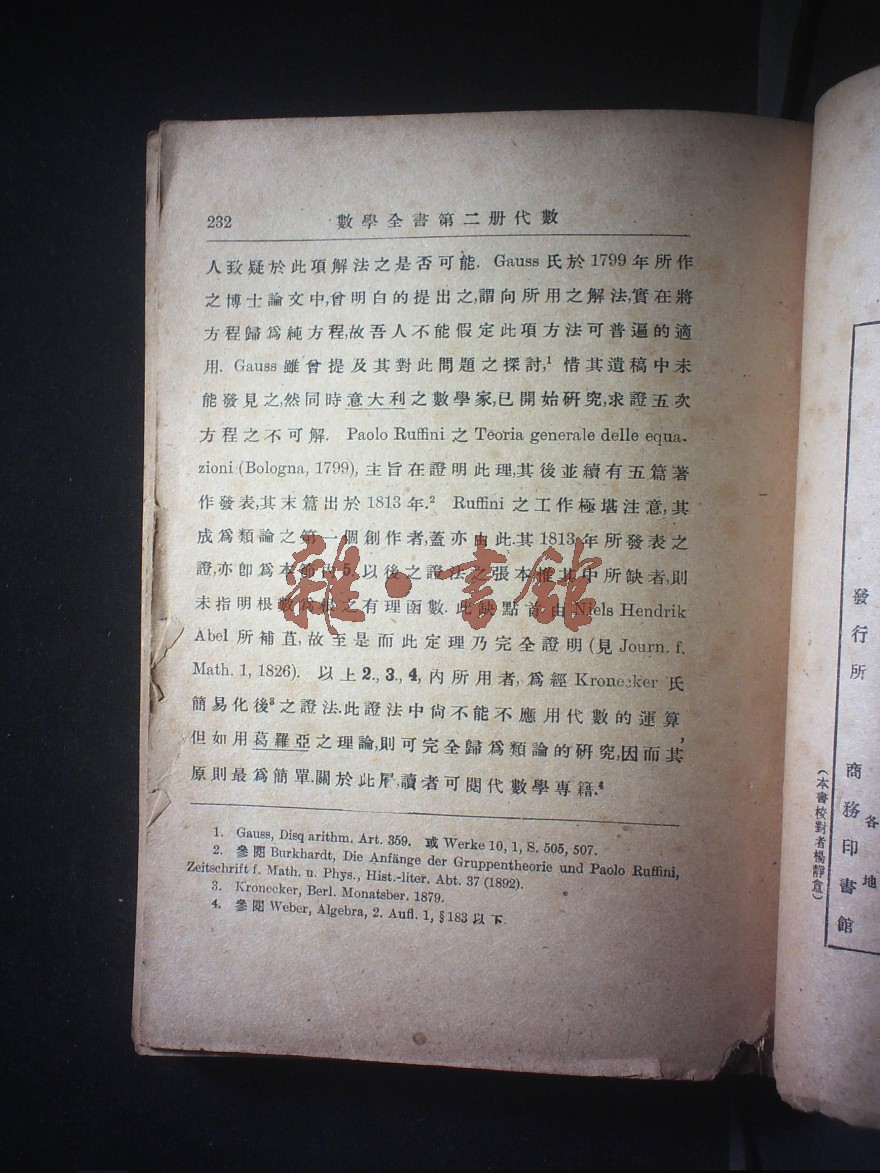 232 數學全書第二册代數
人致疑於此項解法之是否可能. Gauss 氏於 1799 年所作
之博士論文中,曾明白的提出之,謂向所用之解法,實在將
方程歸爲純方程,故吾人不能假定此項方法可普遍的適
用. Gauss 雖曾提及其對此問題之探討,¹ 惜其遺稿中未
能發見之,然同時意大利之數學家,已開始研究,求證五次
方程之不可解. Paolo Ruffini 之 Teoria generale delle equa-
zioni (Bologna, 1799), 主旨在證明此理,其後並續有五篇著
作發表,其末篇出於 1813 年.² Ruffini 之工作極堪注意,其
成爲類論之第一個創作者,蓋亦由此.其 1813 年所發表之
證,亦卽爲本節 5. 以後之證法之張本惟其中所缺者,則
未指明根數爲根之有理函數.此缺點首由 Niels Hendrik
Abel 所補苴,故至是而此定理乃完全證明 (見 Journ. f.
Math. 1, 1826). 以上 2., 3., 4, 內所用者,爲經 Kronecker 氏
簡易化後³ 之證法.此證法中尙不能不應用代數的運算,
但如用葛羅亞之理論,則可完全歸爲類論的研究,因而其
原則最爲簡單.關於此層,讀者可閱代數學專籍.⁴
1. Gauss, Disq arithm. Art. 359. 或 Werke 10, 1, S. 505, 507.
2. 參閱 Burkhardt, Die Anfänge der Gruppentheorie und Paolo Ruffini,
Zeitschrift f. Math. u. Phys., Hist.-liter. Abt. 37 (1892).
3. Kronecker, Berl. Monatsber. 1879.
4. 參閱 Weber, Algebra, 2. Aufl. 1, § 183 以下.
雜·書館
發行所
商務印書館
各地
(本書校對者楊靜盦)